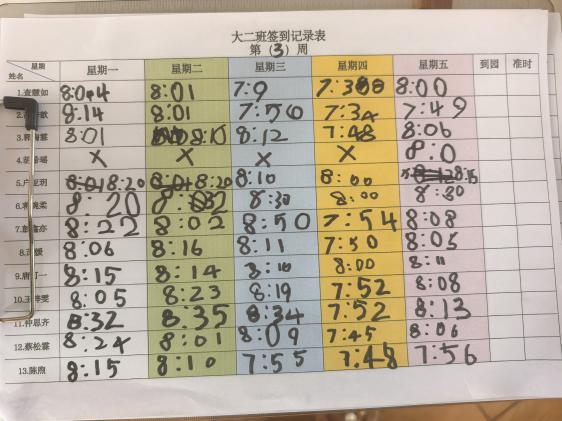 大二班签到记录表
第（3）周
星期 姓名 星期一 星期二 星期三 星期四 星期五 到园 准时
1. 8:04 8:01 7:9 8:00
2. 8:14 8:01 7:50 7:49
3. 8:01 8:12 7:48 8:06
4. × × × × 8:0
5. 8:20 8:20 8:10 8:00 8:15
6. 8:20 8:30 8:00 8:30
7. 8:22 8:02 8:50 7:54 8:08
8. 8:06 8:16 8:11 7:50 8:05
9. 8:15 8:14 8:10 8:00 8:11
10. 8:05 8:23 8:19 7:52 8:08
11.仲思齐 8:32 8:35 8:34 7:52 8:13
12.蔡松霖 8:24 8:01 8:09 7:45 8:06
13.陈煦 8:15 8:10 7:55 7:48 7:56